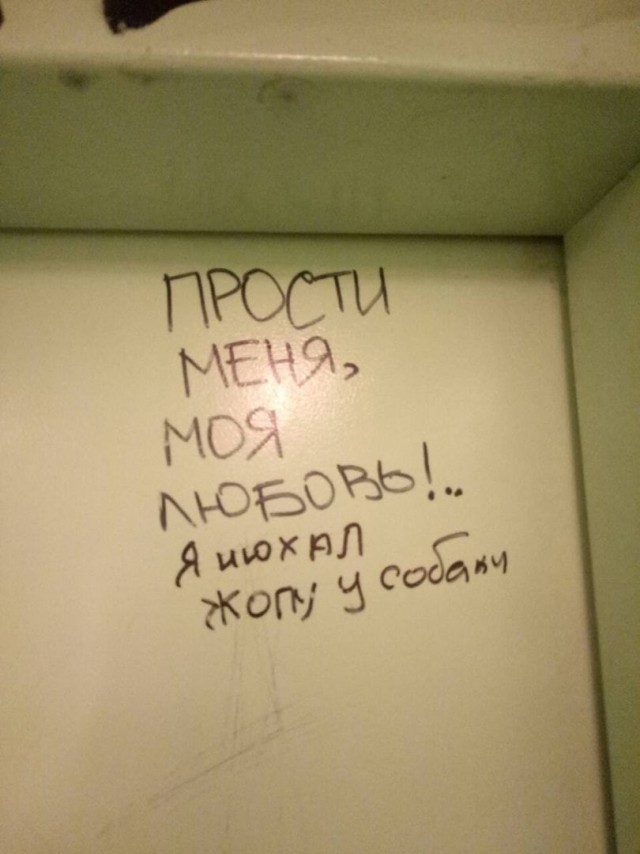 ПРОСТИ
МЕНЯ,
МОЯ
ЛЮБОВЬ!..
Я нюхАЛ
жопу у собаки